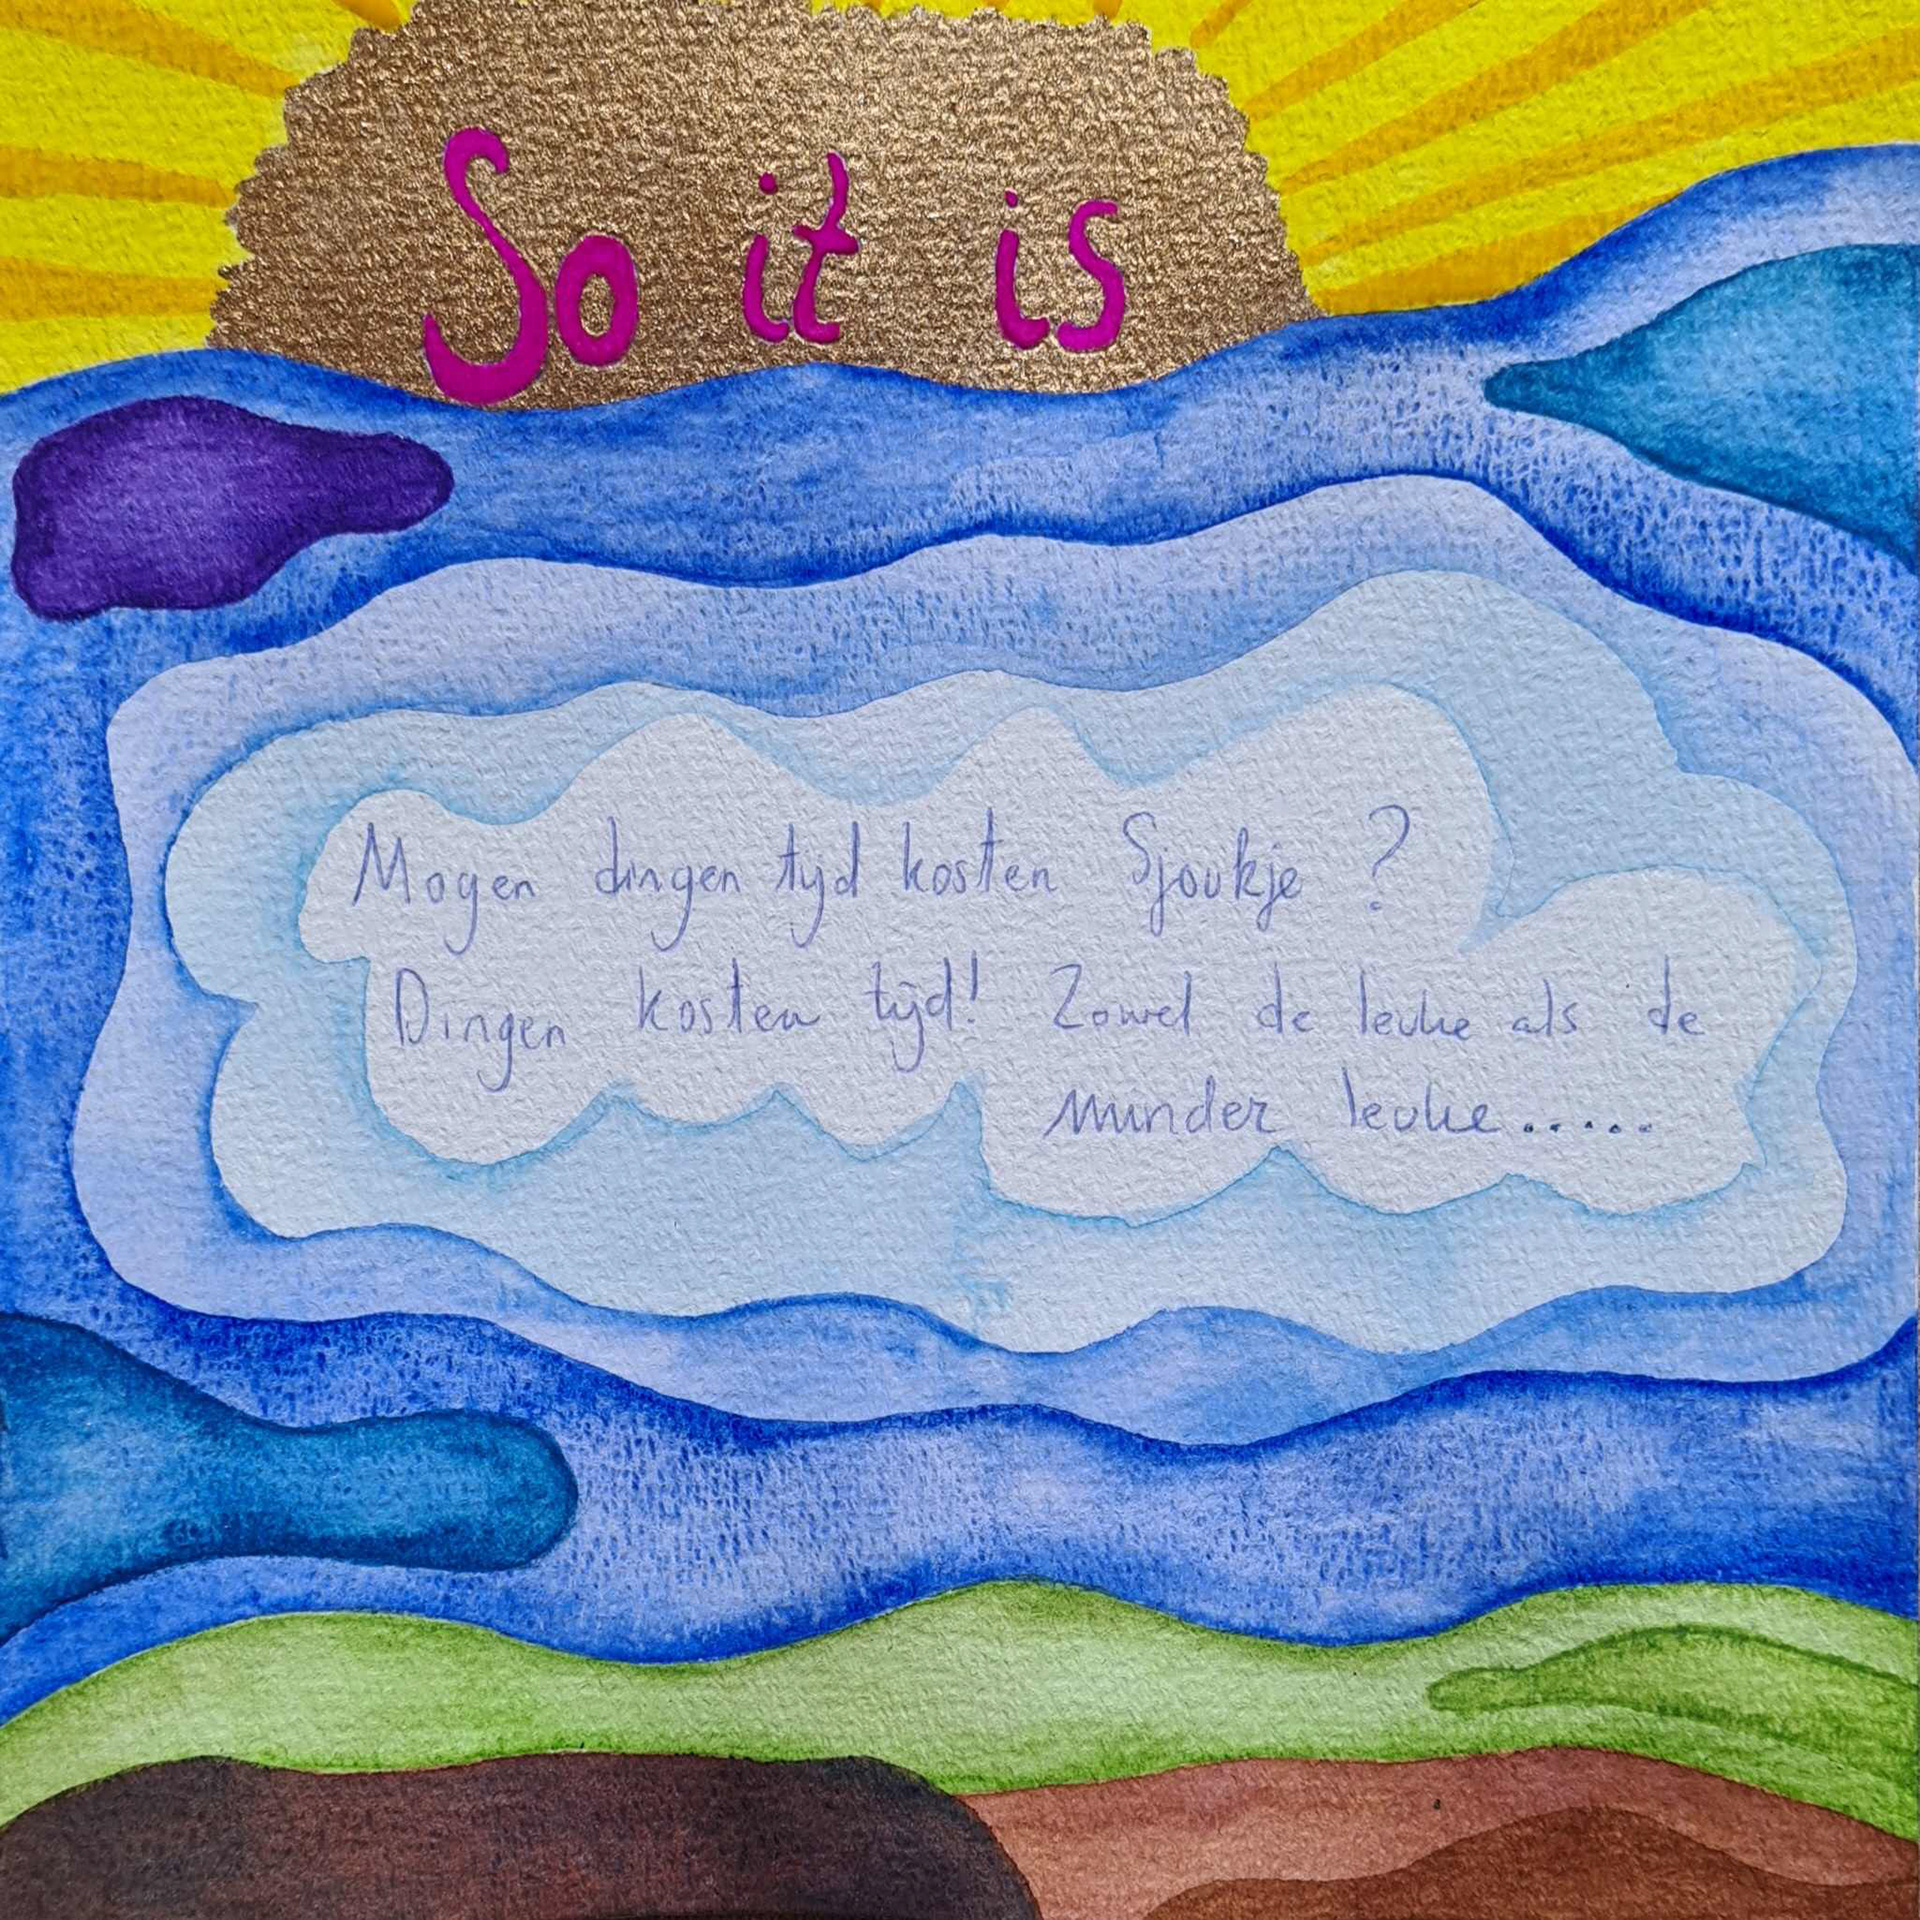 So it is
Mogen dingen tijd kosten Sjoukje ?
Dingen kosten tijd! Zowel de leuke als de
minder leuke.....